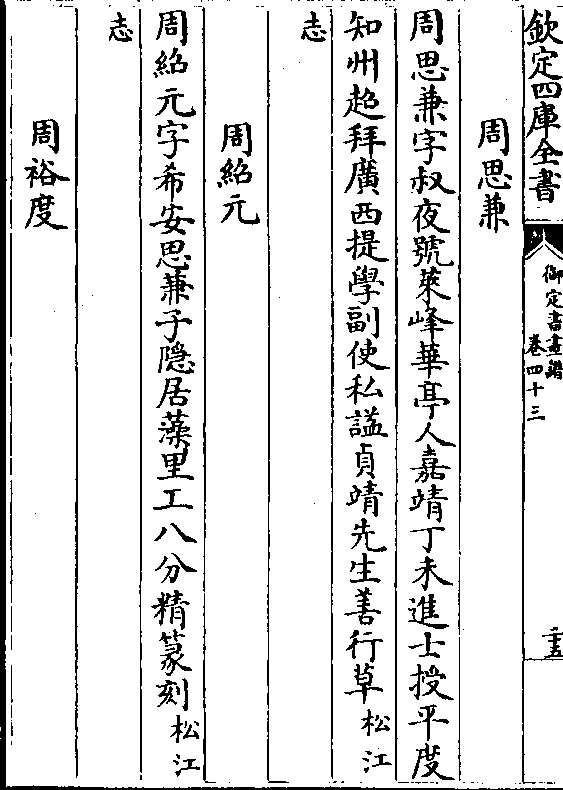 欽定四庫全書
御定書畫譜
卷四十三
二十五
周思兼
周思兼字叔夜號萊峰華亭人嘉靖丁未進士授平度
知州超拜廣西提學副使私謚貞靖先生善行草松江
志
周紹元
周紹元字希安思兼子隱居藻里工八分精篆刻松江
志
周裕度